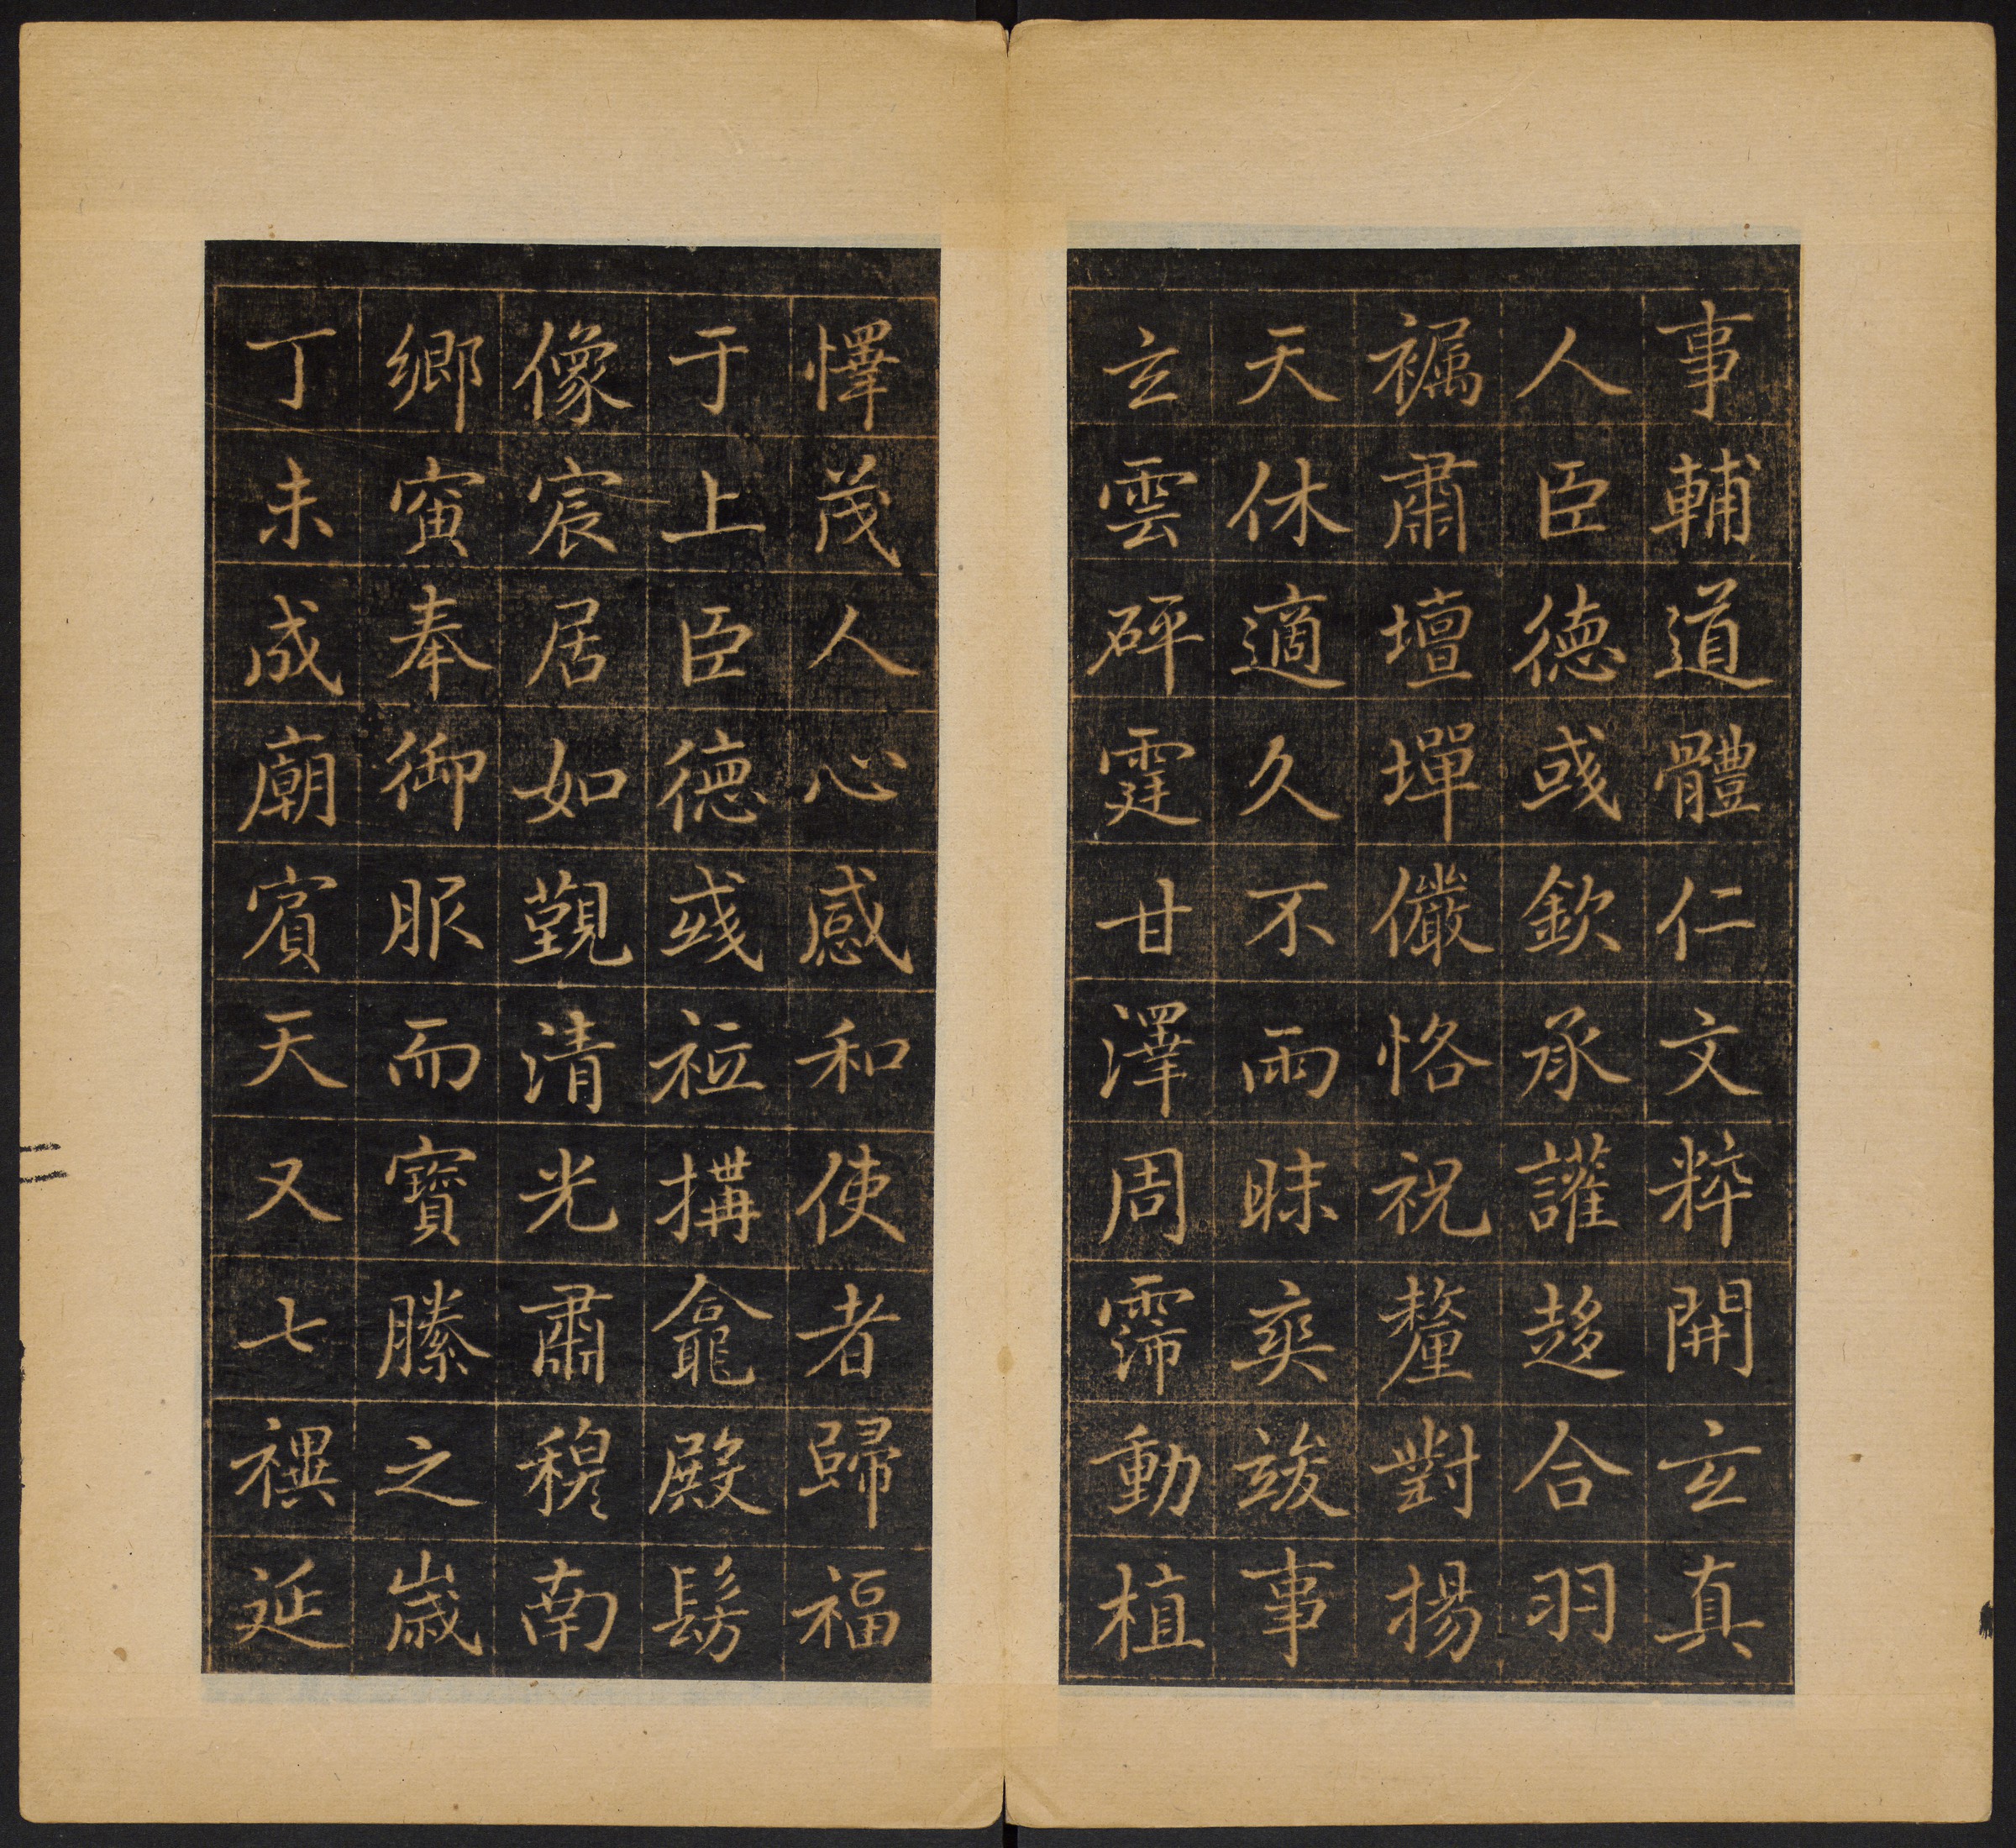 事輔道體仁文粹開玄真
人臣德彧欽承讙趍合羽
襡肅壇墠儼恪祝釐對揚
天休適久不雨昧爽竣事
玄雲砰霆甘澤周霈動植
懌茂人心感和使者歸福
于上臣德彧祗搆龕殿髣
像宸居如觐清光肅穆南
鄉寅奉御服而寶縢之歲
丁未成廟賓天又七禩延